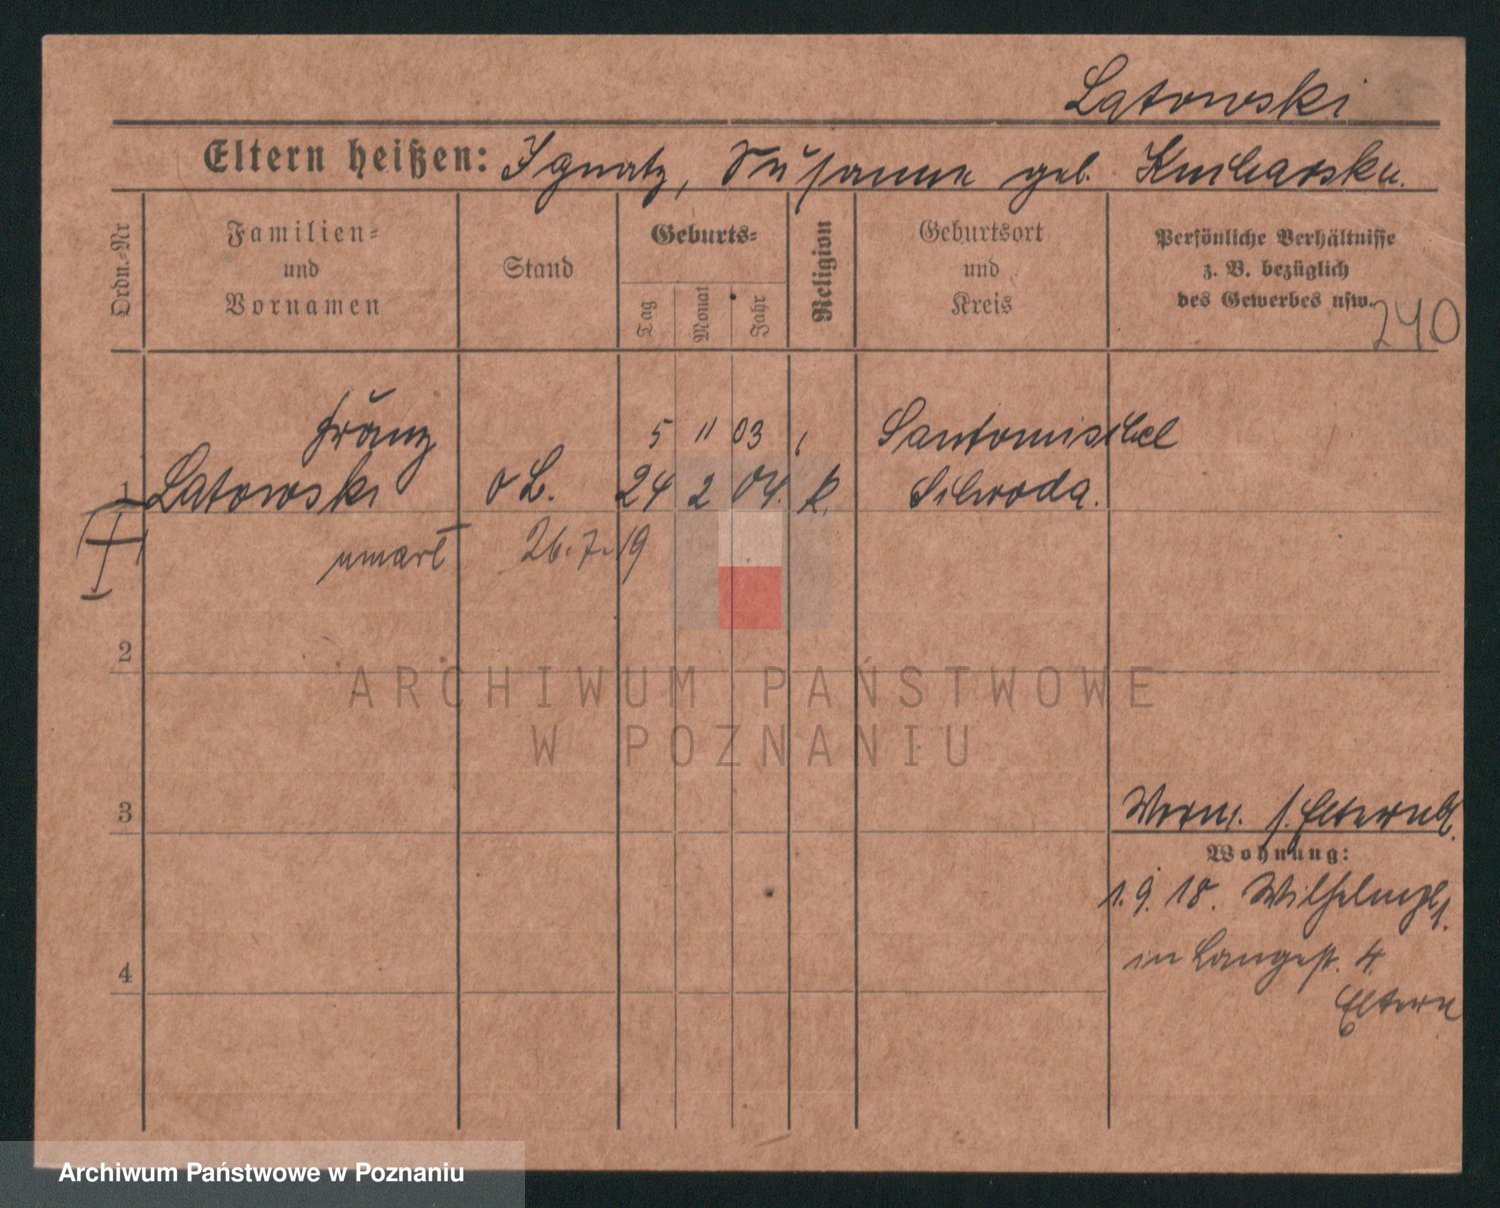 Latowski
Eltern heißen: Ignatz, Susanne geb. Kucharska.
Ordn.-Nr
Familien-
und
Vornamen
Stand
Geburts-
Tag
Monat
Jahr
Religion
Geburtsort
und
Kreis
Persönliche Verhältnisse
z. B. bezüglich
des Gewerbes usw.
240
Franz 5 11 03 Santomischel
1 Latowski L. 24 2 04. k. Schroda.
II
umarł 26.7.19
2
3
4
Worm. s. Elternbl.
Wohnung:
1.9.18. Wilhelmpl.
in Langestr. 4
Eltern
ARCHIWUM PAŃSTWOWE
W POZNANIU
Archiwum Państwowe w Poznaniu